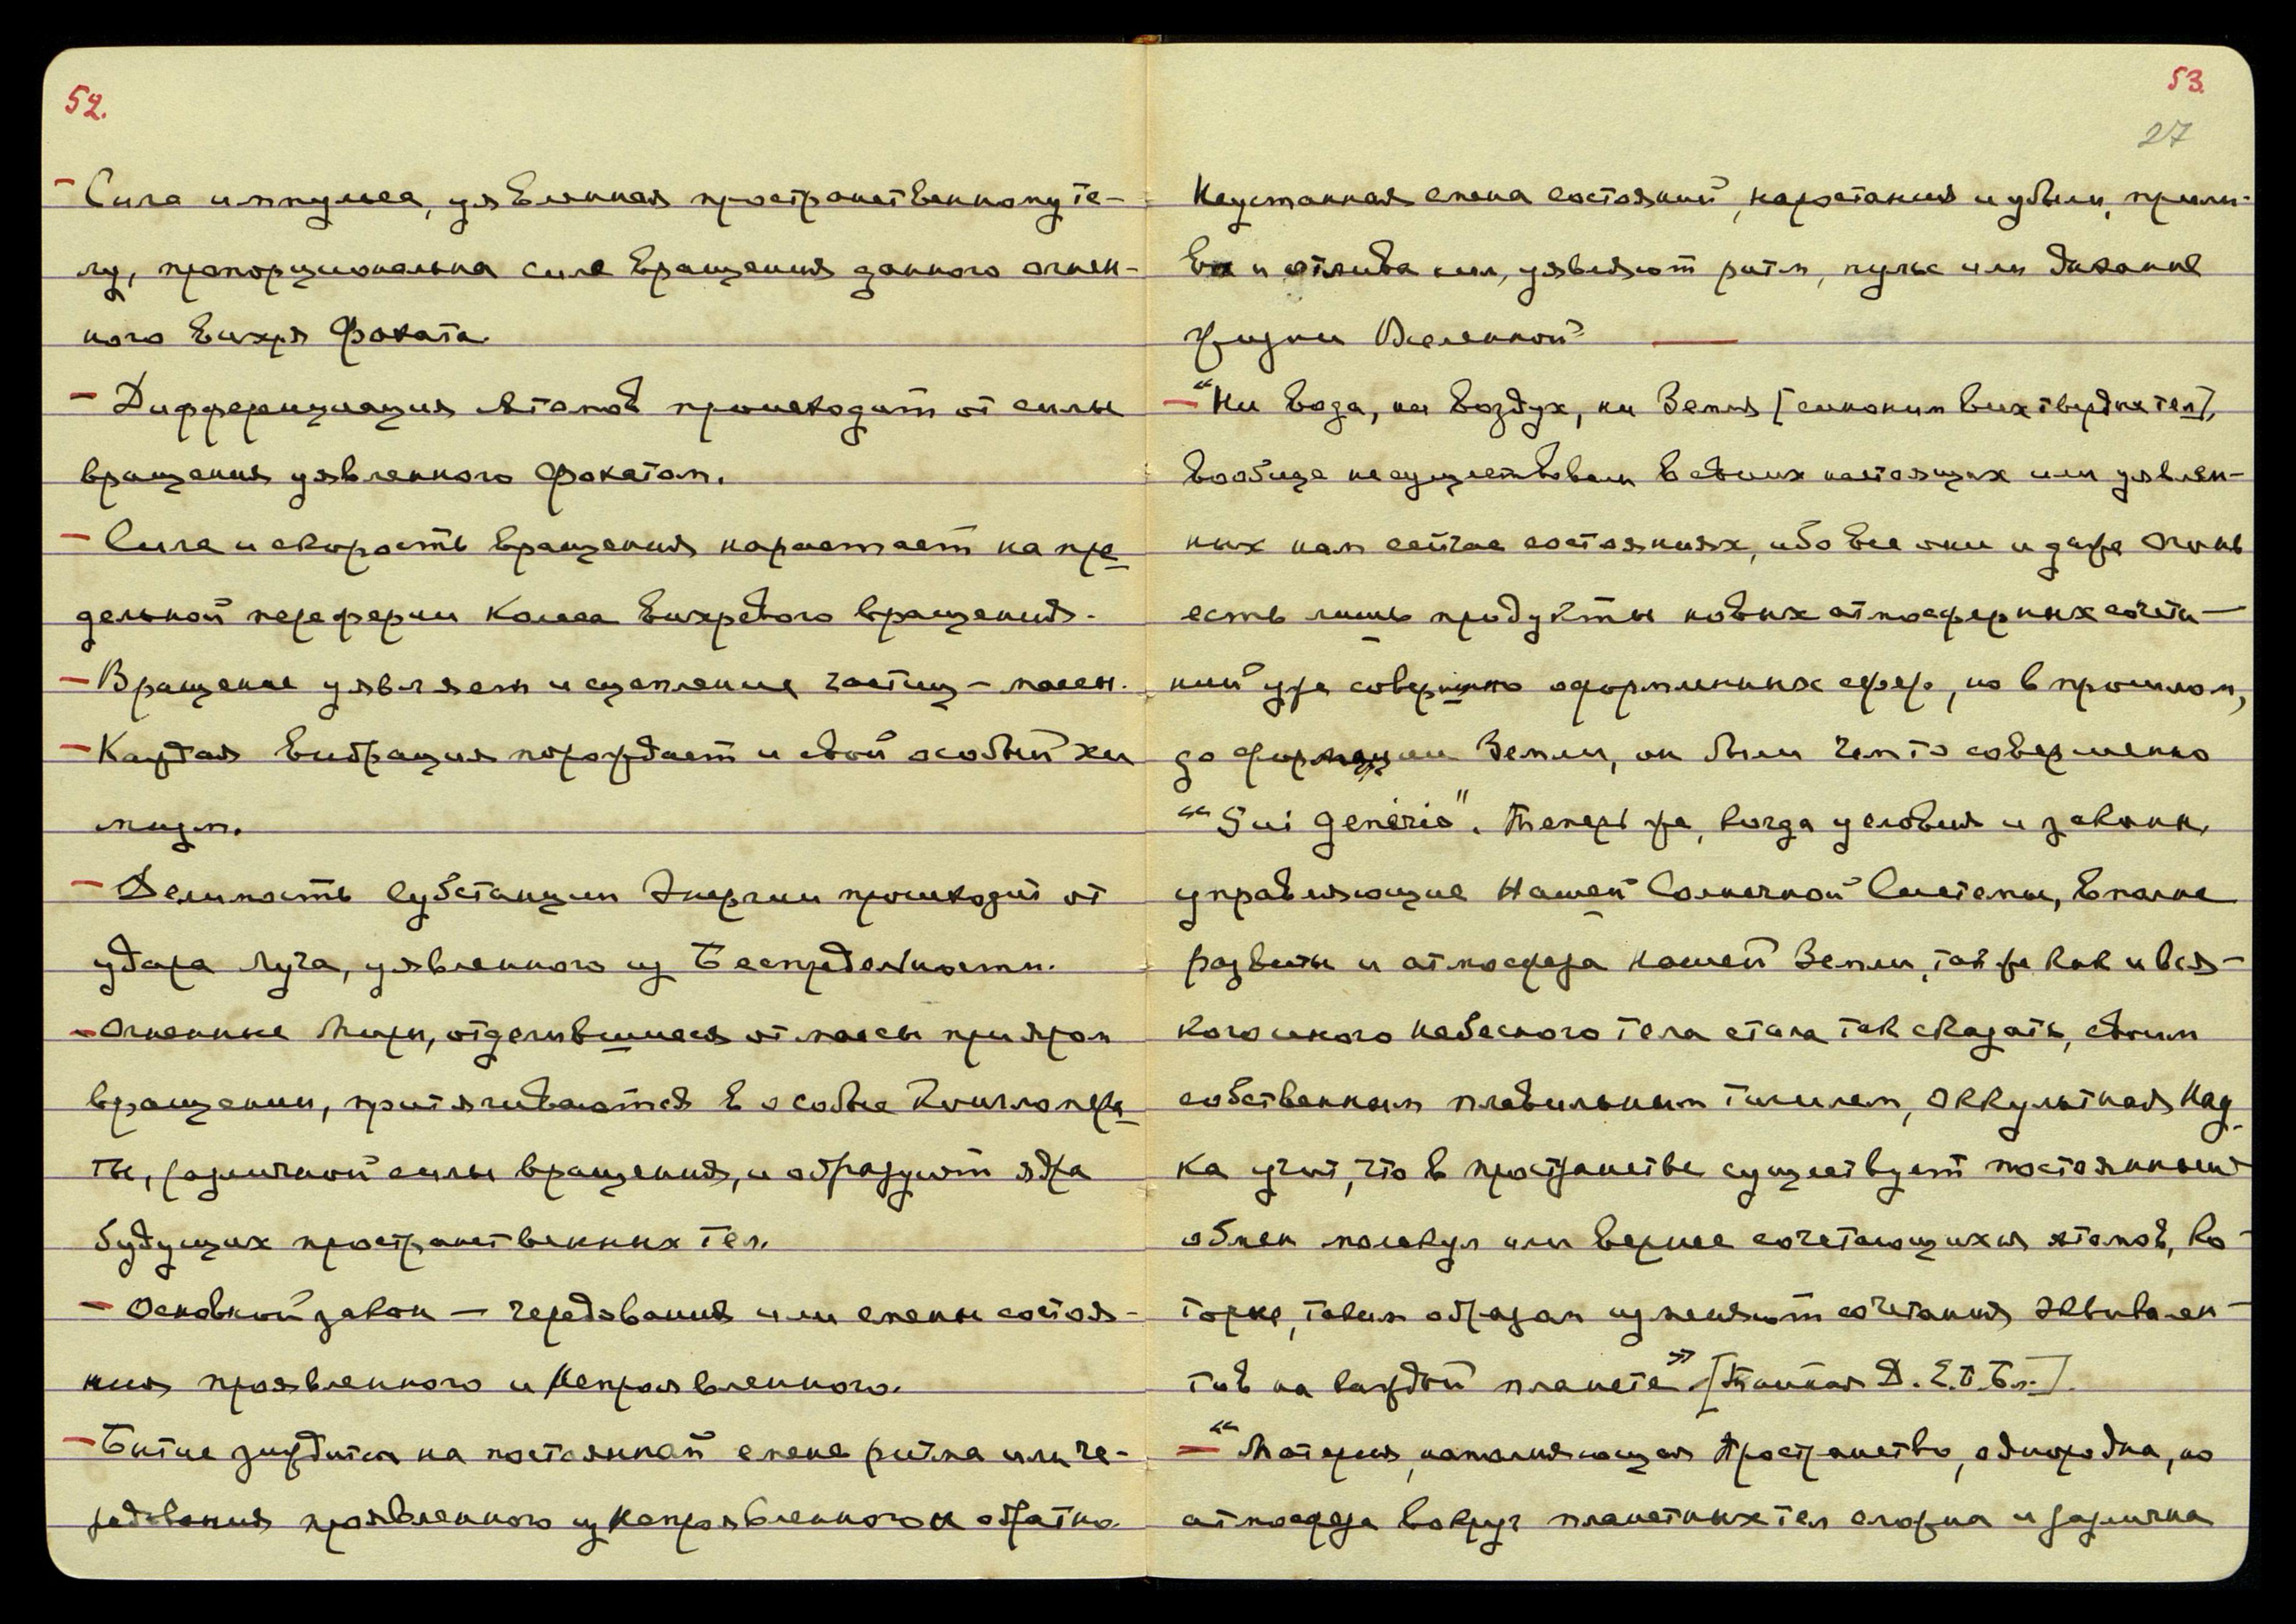 52.
- Сила импульса, уявленная пространственному те-
лу, пропорциональна силе вращения данного огнен-
ного вихря Фохата.
- Дифференциация Атомов происходит от силы
вращения уявленного Фохатом.
- Сила и скорость вращения нарастает на пре
дельной переферии колеса вихревого вращения.
- Вращение уявляет и сцепление частиц - массы.
- Каждая вибрация порождает и свой особый хи
мизм.
- Делимость Субстанции Энергии происходит от
удара Луча, уявленного из Беспредельности.
- Огненные Миры, отделившиеся от массы при яром
вращении, притягиваются в особые Конгломера
ты, различной силы вращения, и образуют ядра
будущих пространственных тел.
- Основной закон — чередования или смены состоя-
ния проявленного и Непроявленного.
- Бытие зиждится на постоянной смене ритма или че-
редования проявленного из Непроявленного и обратно.
53.
27
Неустанная смена состояний, нарастания и убыли, прили-
ва и отлива сил, уявляют ритм, пульс или дыхание
жизни Вселенной —
- "Ни вода, ни воздух, ни Земля [синоним всех твердых тел],
вообще не существовали в своих настоящих или уявлен-
ных нам сейчас состояниях, ибо все они и даже Огонь
есть лишь продукты новых атмосферных сочета-
ний уже совершенно оформленных сфер, но в прошлом,
до формации Земли, он были чем то совершенно
"Sui generis". Теперь же, когда условия и законы,
управляющие Нашей Солнечной Системы, вполне
развиты и атмосфера нашей Земли, так же как и вся-
кого иного небесного тела стала так сказать, своим
собственным плавильным тиглем, Оккультная Нау
ка учит, что в пространстве существует постоянный
обмен молекул или вернее сочетающихся атомов, ко-
торые, таким образом изменяют сочетания эквивален-
тов на каждой планете" [Тайная Д. Е.П.Бл.].
- "Материя, наполняющая Пространство, однородна, но
атмосфера вокруг планетных тел сложна и различна